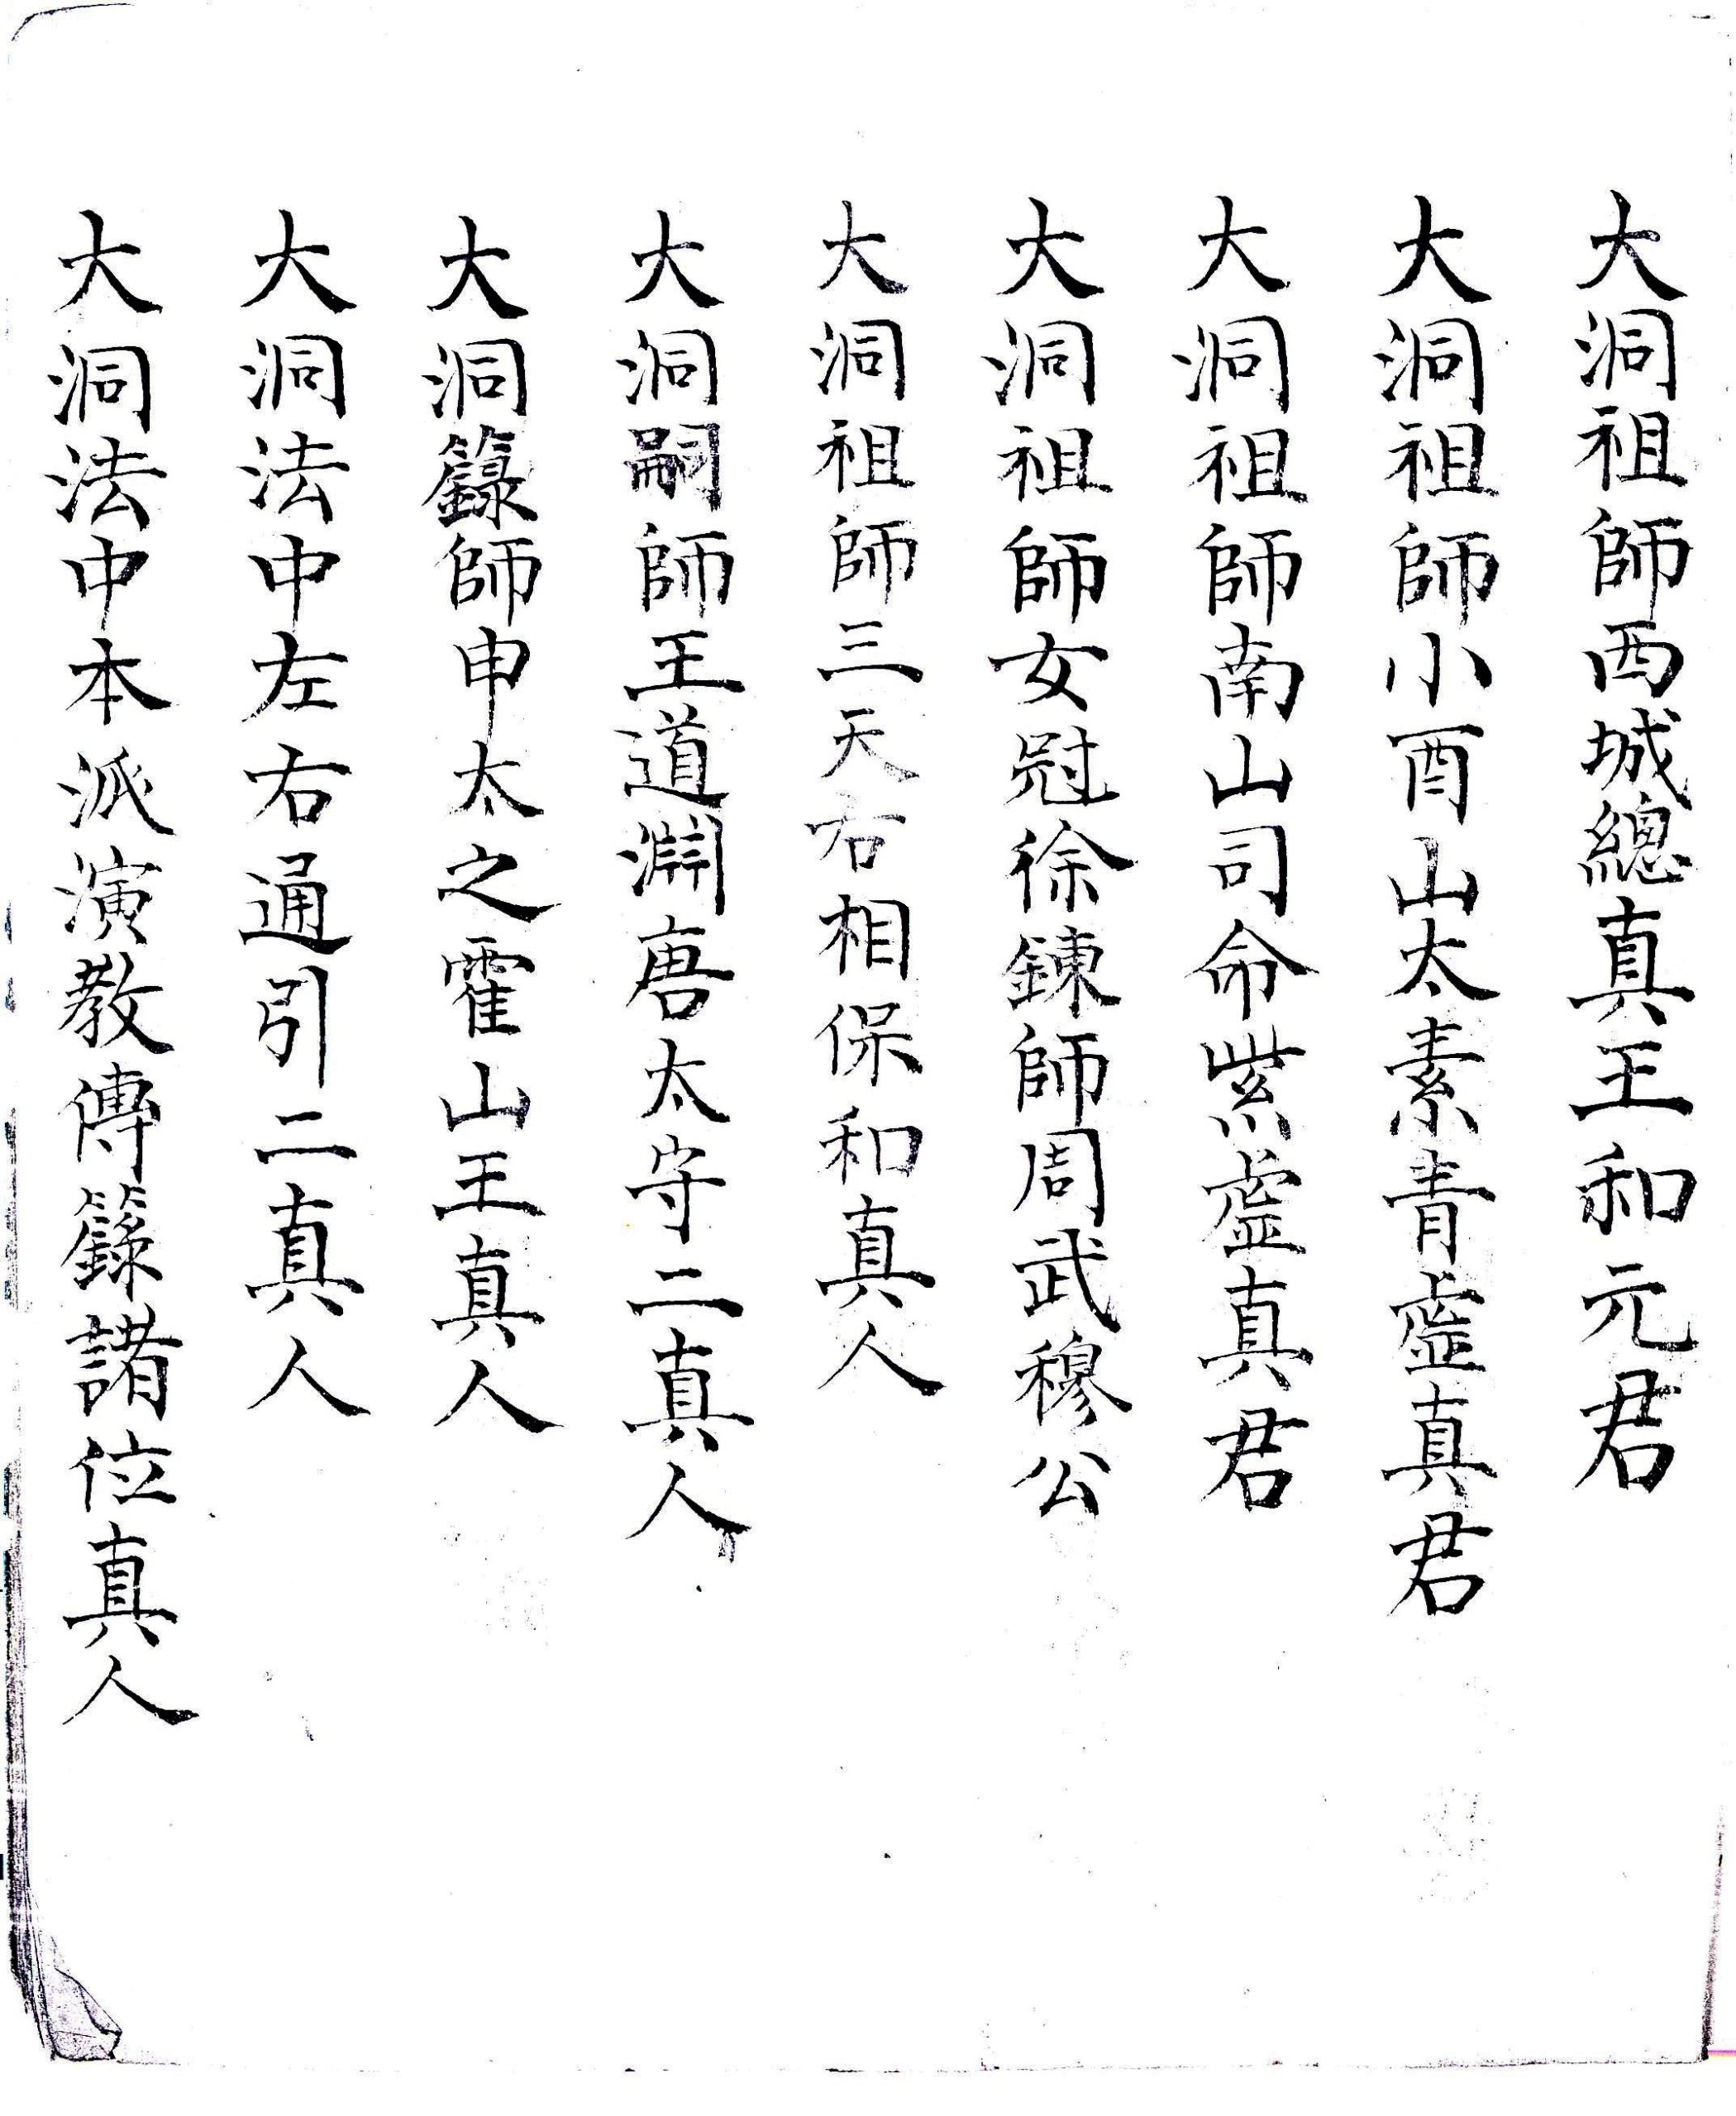 大洞祖師西城總真王和元君
大洞祖師小酉山太素青虛真君
大洞祖師南山司命紫虛真君
大洞祖師女冠徐鍊師周武穆公
大洞祖師三天右相保和真人
大洞嗣師王道淵唐太守二真人
大洞籙師申太之霍山王真人
大洞法中左右通引二真人
大洞法中本派演教傳籙諸位真人